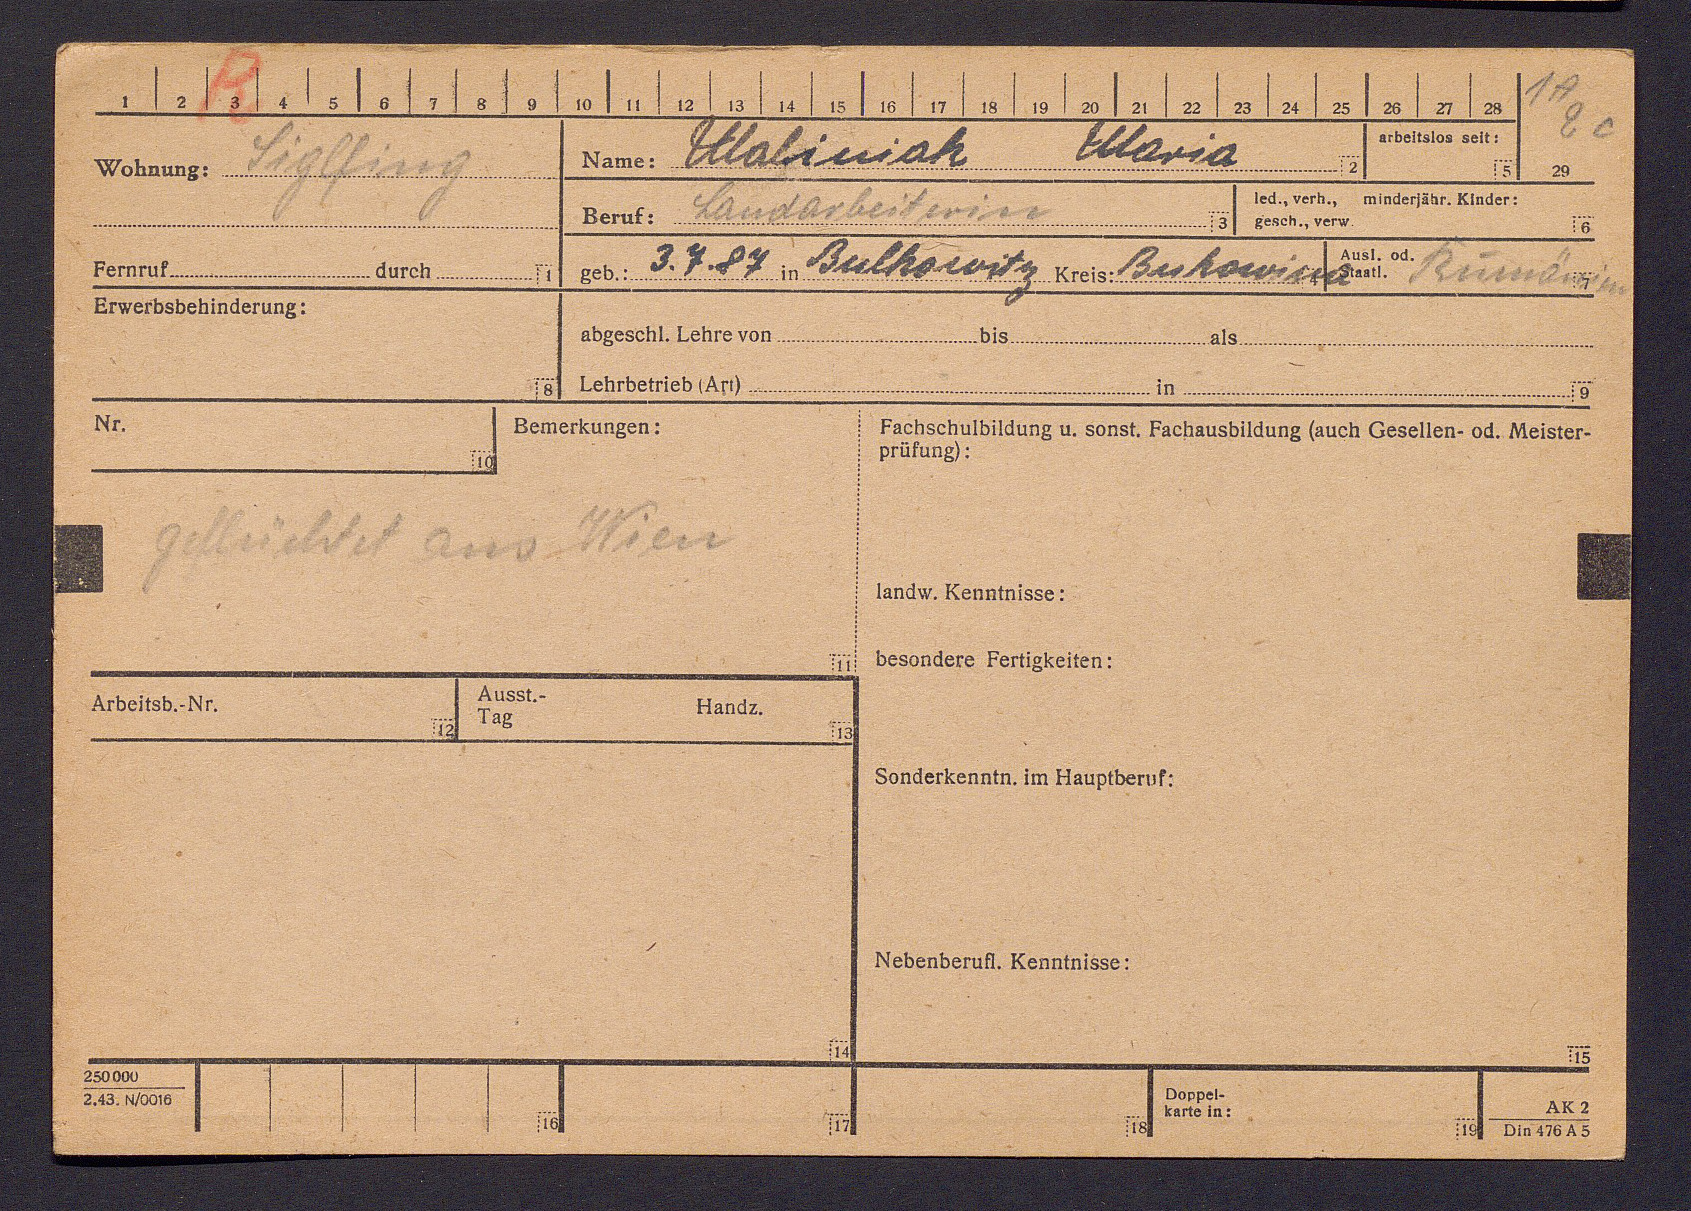 R
1 2 3 4 5 6 7 8 9 10 11 12 13 14 15 16 17 18 19 20 21 22 23 24 25 26 27 28
1A
2 c
29
Wohnung: Siglfing
Name: Maliniak Maria 2
arbeitslos seit: 5
Beruf: Landarbeiterin 3
led., verh., minderjähr. Kinder:
gesch., verw. 6
Fernruf durch 1
geb.: 3.7.87 in Bulkowitz Kreis: Bukowina 4
Ausl. od.
Staatl. Rumänien 7
Erwerbsbehinderung:
8
abgeschl. Lehre von bis als
Lehrbetrieb (Art) in 9
Nr.
10
Bemerkungen:
geflüchtet aus Wien
11
Fachschulbildung u. sonst. Fachausbildung (auch Gesellen- od. Meister-
prüfung):
landw. Kenntnisse:
besondere Fertigkeiten:
Arbeitsb.-Nr. 12
Ausst.-
Tag Handz. 13
Sonderkenntn. im Hauptberuf:
Nebenberufl. Kenntnisse:
14
15
250000
2.43. N/0016
16
17
18
Doppel-
karte in: 19
AK 2
Din 476 A 5